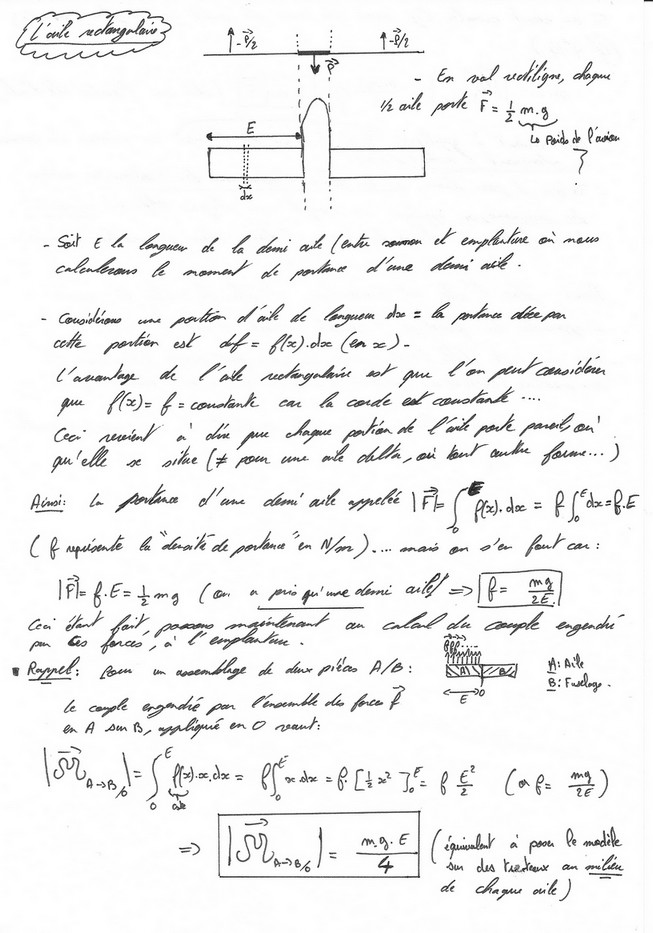 L'aile rectangulaire
-P/2
-P/2
P
- En vol rectiligne, chaque
1/2 aile porte F = 1/2 m.g
↳ Poids de l'avion
E
dx
- Soit E la longueur de la demi aile (entre saumon et emplanture où nous
calculerons le moment de portance d'une demi aile.
- Considérons une portion d'aile de longueur dx = la portance créée par
cette portion est df = f(x).dx (en x) -
L'avantage de l'aile rectangulaire est que l'on peut considérer
que f(x) = f = constante car la corde est constante ....
Ceci revient à dire que chaque portion de l'aile porte pareil, où
qu'elle se situe (≠ pour une aile delta, où tout autre forme...)
Ainsi: la portance d'une demi aile appelée |F| = ∫₀ᴱ f(x).dx = f ∫₀ᴱ dx = f.E
( f représente la "densité de portance" en N/m) .... mais on s'en fout car :
|F| = f.E = 1/2 mg (on a pris qu'une demi aile!) => f = mg/2E
Ceci étant fait, passons maintenant au calcul du couple engendré
par ces forces, à l'emplanture.
Rappel: Pour un assemblage de deux pièces A/B:
A B
E O
A: Aile
B: Fuselage.
Le couple engendré par l'ensemble des forces f
en A sur B, appliqué en O vaut:
|M A→B/O| = ∫₀ᴱ f(x).x.dx = f ∫₀ᴱ x.dx = f. [1/2 x²]₀ᴱ = f E²/2 (or f = mg/2E)
=> |M A→B/O| = m.g.E/4
(équivalent à poser le modèle
sur des tréteaux au milieu
de chaque aile)